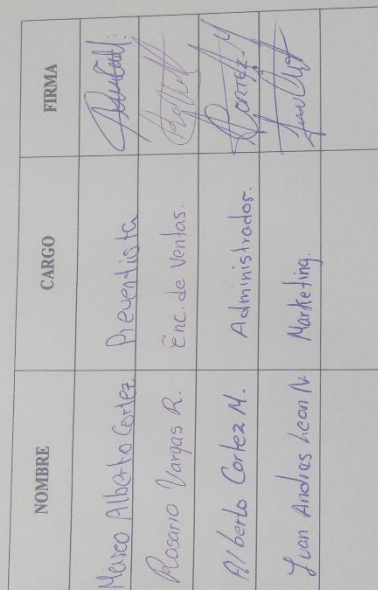 NOMBRE CARGO FIRMA
Marco Alberto Cortez Preventista
Rosario Vargas R. Enc. de Ventas.
Alberto Cortez M. Administrador. Cortez M
Juan Andres Leon N. Marketing.